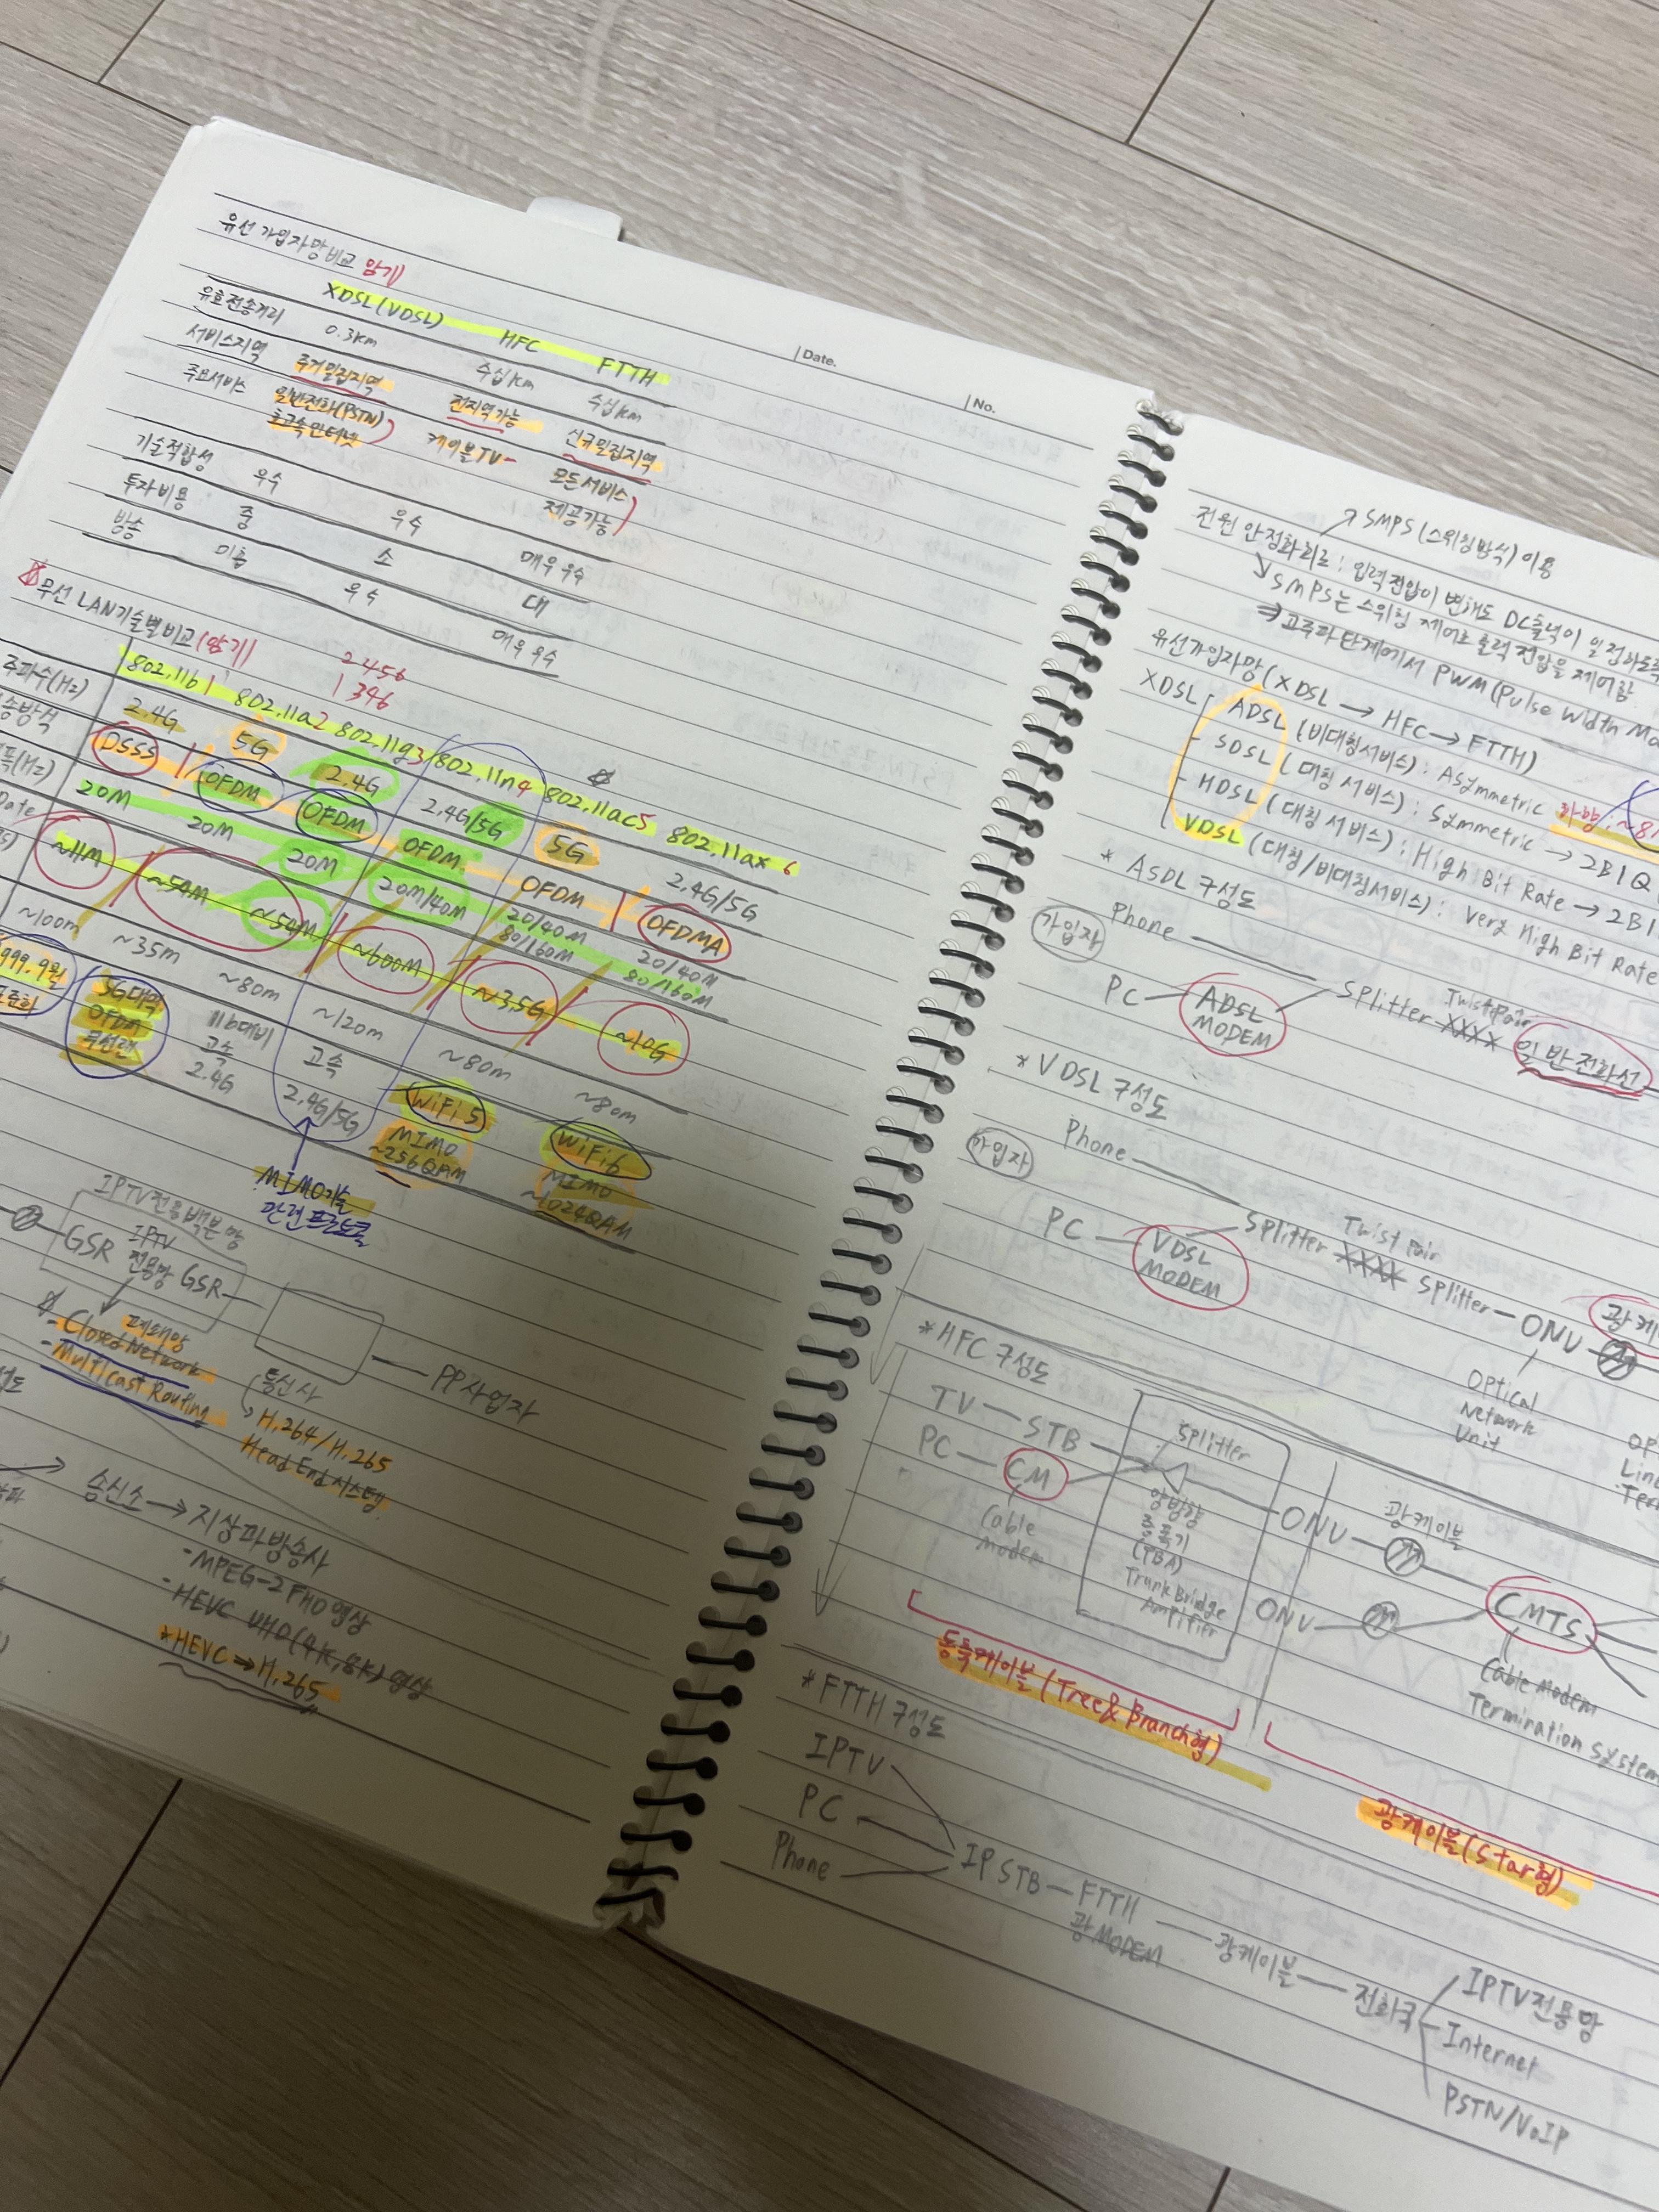 유선 가입자망 비교 암기)
XDSL(VDSL) HFC FTTH
유효전송거리 0.3km 수십km 수십km
서비스지역 주거밀집지역 전지역가능 신규밀집지역
주요서비스 일반전화(PSTN) 초고속인터넷 케이블TV 모든서비스 제공가능
기술적합성 우수 우수 매우 우수
투자비용 중 소 대
방송 미흡 우수 매우 우수
무선 LAN기술별 비교(암기)
2 456
1 346
802.11b 1 802.11a 2 802.11g 3 802.11n 4 802.11ac 5 802.11ax 6
주파수(Hz) 2.4G 5G 2.4G 2.4G/5G 5G 2.4G/5G
송방식 DSSS OFDM OFDM OFDM OFDM OFDMA
폭(Hz) 20M 20M 20M 20M/40M 20/40M 80/160M 20/40M 80/160M
Date ~11M ~54M ~54M ~600M ~3.5G ~10G
~100m ~35m ~80m ~120m ~80m ~80m
999.9월 표준화
5G대역 OFDM 무선랜
11b대비 고속 2.4G
고속 2.4G/5G
WiFi 5 MIMO ~256QAM
WiFi6 MIMO ~1024QAM
MIMO기술
관련 프로토콜
IPTV전용백본망
GSR IPTV 전용망 GSR
폐쇄망
- Closed Network
- Multicast Routing
통신사
H.264/H.265
Head End시스템
PP사업자
송신소 → 지상파방송사
- MPEG-2 FHD영상
- HEVC UHD(4K,8K)영상
*HEVC ⇒ H.265
Date.
No.
SMPS (스위칭방식) 이용
전원 안정화회로 : 입력전압이 변해도 DC출력이 일정하도록
↘ SMPS는 스위칭 제어로 출력 전압을 제어함
⇒ 고주파단계에서 PWM(Pulse Width Mo
유선가입자망 (XDSL → HFC → FTTH)
XDSL ADSL (비대칭서비스) : Asymmetric 하향 : ~8
- SDSL (대칭 서비스) : Symmetric → 2B1Q
- HDSL (대칭 서비스) : High Bit Rate → 2B1
VDSL (대칭/비대칭서비스) : Very High Bit Rate
* ASDL 구성도
가입자 Phone
PC ADSL MODEM Splitter Twist Pair 일반전화선
* VDSL 구성도
가입자 Phone
PC VDSL MODEM Splitter Twist Pair Splitter ONU 광케
Optical
Network
Unit
OP
Lin
Ter
* HFC 구성도
TV STB Splitter
PC CM
Cable
Modem
양방향
증폭기
(TBA)
Trunk Bridge
Amplifier
ONU 광케이블
ONU CMTS
Cable Modem
Termination System
동축케이블 (Tree & Branch형)
광케이블 (Star형)
* FTTH 구성도
IPTV
PC
Phone
IP STB FTTH
광 MODEM
광케이블 전화국
IPTV전용망
Internet
PSTN/VoIP